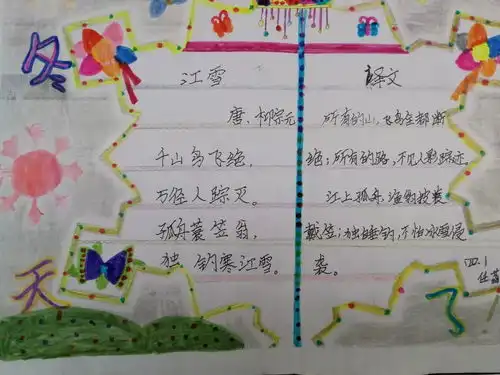 冬
天
江雪
唐,柳宗元
千山鸟飞绝,
万径人踪灭。
孤舟蓑笠翁,
独钓寒江雪。
译文
所有的山,飞鸟全都断
绝;所有的路,不见人影踪迹。
江上孤舟,渔翁披蓑
戴笠;独 钓,不怕冰雪侵
袭。
四.1